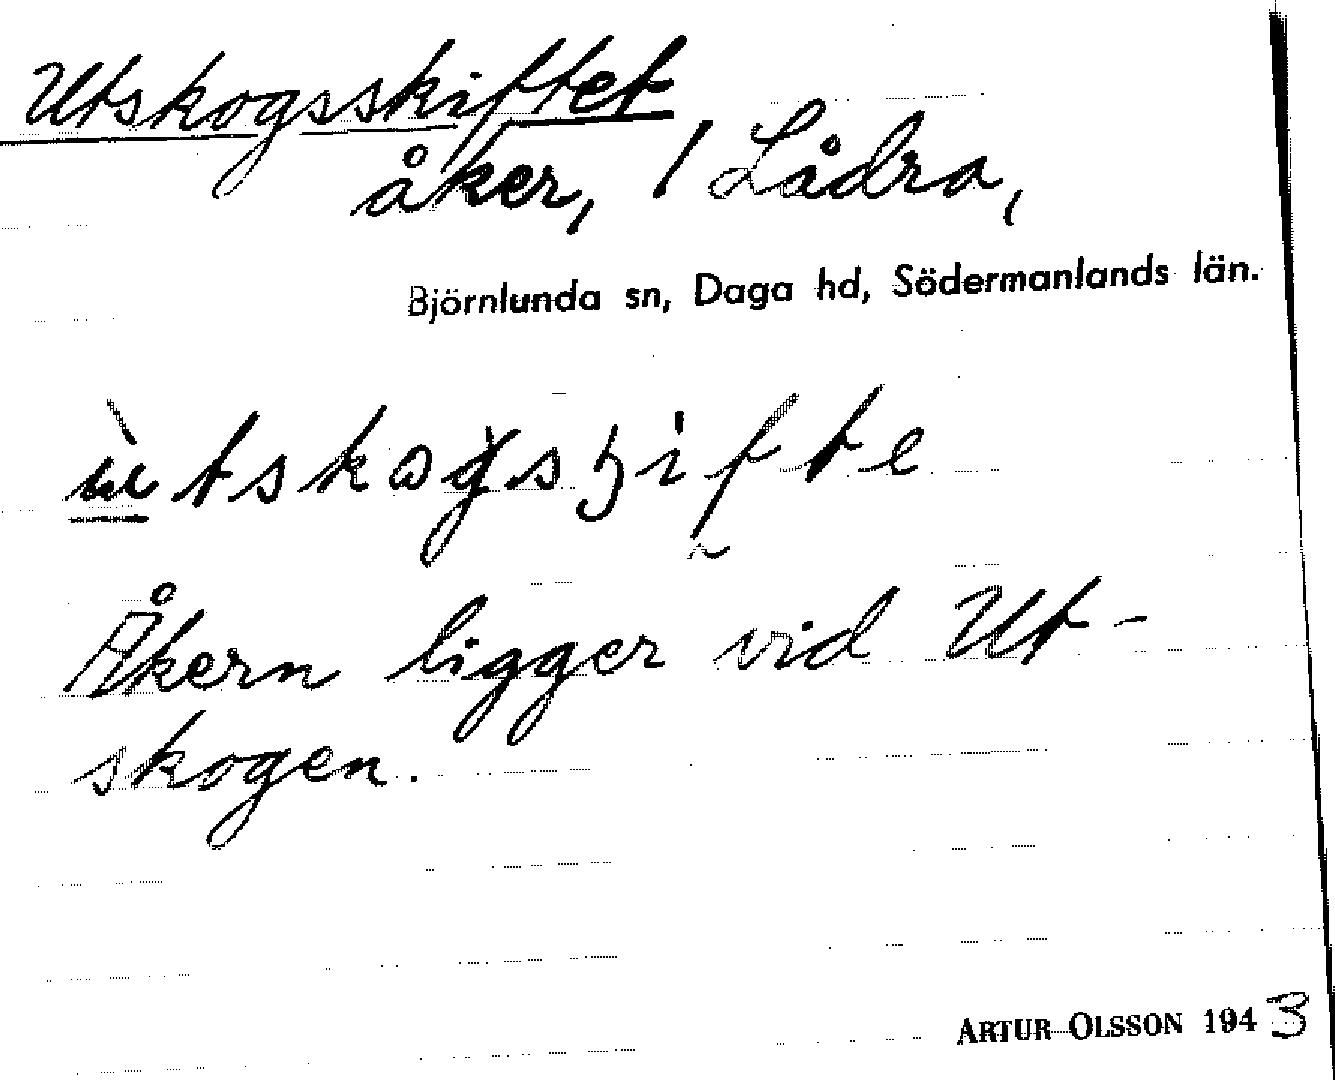 Utskogsskiftet
åker, / Lådra,
Björnlunda sn, Daga hd, Södermanlands län.
Åkern ligger vid Ut-
skogen.
ARTUR OLSSON 1943